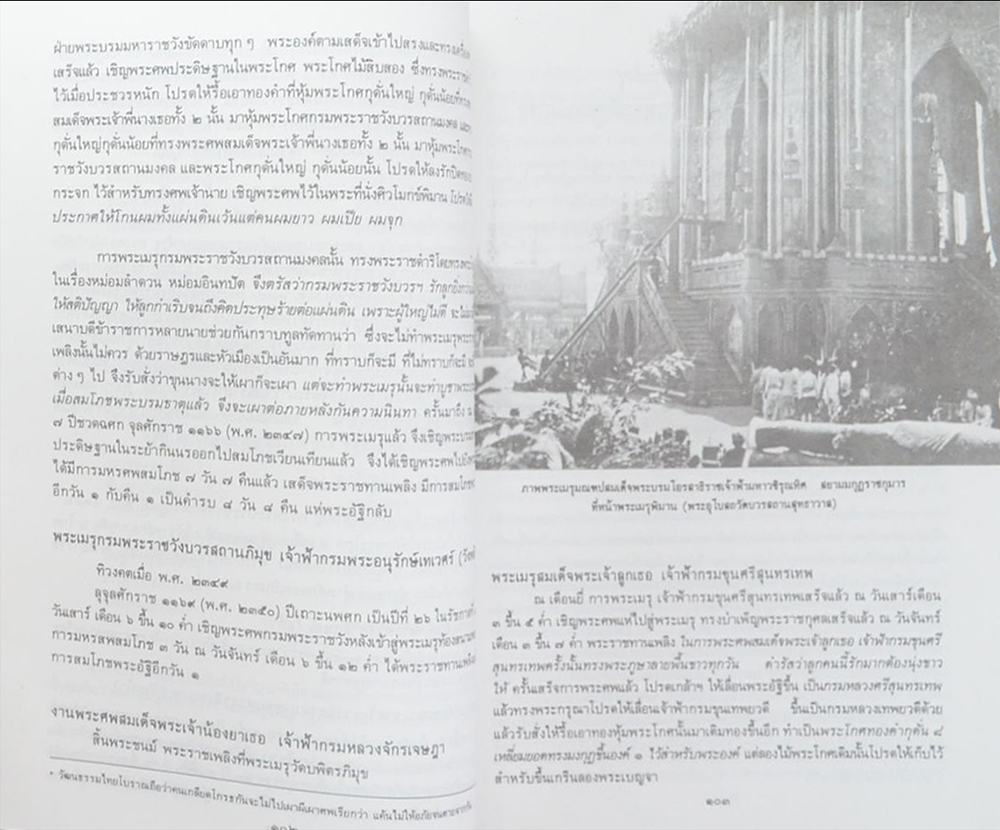 ฝ่ายพระบรมมหาราชวังขัดดาบทุก ๆ พระองค์ตามเสด็จเข้าไปสรงและทรงเครื่อง
เสร็จแล้ว เชิญพระศพประดิษฐานในพระโกศ พระโกศไม้สิบสอง ซึ่งทรงพระราช
ไว้เมื่อประชวรหนัก โปรดให้รื้อเอาทองคำที่หุ้มพระโกศกุดั่นใหญ่ กุดั่นน้อยที่ทรง
สมเด็จพระเจ้าพี่นางเธอทั้ง ๒ นั้น มาหุ้มพระโกศกรมพระราชวังบวรสถานมงคล
กุดั่นใหญ่กุดั่นน้อยที่ทรงพระศพสมเด็จพระเจ้าพี่นางเธอทั้ง ๒ นั้น มาหุ้มพระโกศ
ราชวังบวรสถานมงคล และพระโกศกุดั่นใหญ่ กุดั่นน้อยนั้น โปรดให้ลงรักปิด
กระจก ไว้สำหรับทรงศพเจ้านาย เชิญพระศพไว้ในพระที่นั่งศิวโมกข์พิมาน
ประกาศให้โกนผมทั้งแผ่นดินเว้นแต่คนผมยาว ผมเปีย ผมจุก
การพระเมรุกรมพระราชวังบวรสถานมงคลนั้น ทรงพระราชดำริโดยทรง
ในเรื่องหม่อมลำดวน หม่อมอินทปัต จึงตรัสว่ากรมพระราชวังบวรฯ รักลูกยิ่งกว่า
ให้สติปัญญา ให้ลูกกำเริบจนถึงคิดประทุษร้ายต่อแผ่นดิน เพราะผู้ใหญ่ไม่ดี
เสนาบดีข้าราชการหลายนายช่วยกันกราบทูลทัดทานว่า ซึ่งจะไม่ทำพระเมรุ
เพลิงนั้นไม่ควร ด้วยราษฎรและหัวเมืองเป็นอันมาก ที่ทราบก็จะมี ที่ไม่ทราบก็จะมี
ต่าง ๆ ไป จึงรับสั่งว่าขุนนางจะให้เผาก็จะเผา แต่จะทำพระเมรุนั้นจะทำบูชาพระ
เมื่อสมโภชพระบรมธาตุแล้ว จึงจะเผาต่อภายหลังกันความนินทา ครั้นมาถึง ณ
๗ ปีชวดฉศก จุลศักราช ๑๑๖๖ (พ.ศ. ๒๓๔๗) การพระเมรุแล้ว จึงเชิญพระบรม
ประดิษฐานในระย้ากินนรออกไปสมโภชเวียนเทียนแล้ว จึงได้เชิญพระศพไป
ได้มีการมหรศพสมโภช ๗ วัน ๗ คืนแล้ว เสด็จพระราชทานเพลิง มีการสมโภช
อีกวัน ๑ กับคืน ๑ เป็นคำรบ ๘ วัน ๘ คืน แห่พระอัฐิกลับ
พระเมรุกรมพระราชวังบวรสถานภิมุข เจ้าฟ้ากรมพระอนุรักษ์เทเวศร์
ทิวงคตเมื่อ พ.ศ. ๒๓๔๙
ลุจุลศักราช ๑๑๖๙ (พ.ศ. ๒๓๕๐) ปีเถาะนพศก เป็นปีที่ ๒๖ ในรัชกาล
วันเสาร์ เดือน ๖ ขึ้น ๑๐ ค่ำ เชิญพระศพกรมพระราชวังหลังเข้าสู่พระเมรุท้องสนาม
การมหรสพสมโภช ๓ วัน ณ วันจันทร์ เดือน ๖ ขึ้น ๑๒ ค่ำ ได้พระราชทานเพลิง
การสมโภชพระอัฐิอีกวัน ๑
งานพระศพสมเด็จพระเจ้าน้องยาเธอ เจ้าฟ้ากรมหลวงจักรเจษฎา
สิ้นพระชนม์ พระราชเพลิงที่พระเมรุวัดบพิตรภิมุข
* วัฒนธรรมไทยโบราณถือว่าคนเกลียดโกรธกันจะไม่ไปเผาผีเผาศพเรียกว่า แค้นไม่ให้อภัยจน
๑๐๒
ภาพพระเมรุมณฑปสมเด็จพระบรมโอรสาธิราชเจ้าฟ้ามหาวชิรุณหิศ สยามมกุฎราชกุมาร
ที่หน้าพระเมรุพิมาน (พระอุโบสถวัดบวรสถานสุทธาวาส)
พระเมรุสมเด็จพระเจ้าลูกเธอ เจ้าฟ้ากรมขุนศรีสุนทรเทพ
ณ เดือนยี่ การพระเมรุ เจ้าฟ้ากรมขุนศรีสุนทรเทพเสร็จแล้ว ณ วันเสาร์เดือน
๓ ขึ้น ๕ ค่ำ เชิญพระศพแห่ไปสู่พระเมรุ ทรงบำเพ็ญพระราชกุศลเสร็จแล้ว ณ วันจันทร์
เดือน ๓ ขึ้น ๗ ค่ำ พระราชทานเพลิง ในการพระศพสมเด็จพระเจ้าลูกเธอ เจ้าฟ้ากรมขุนศรี
สุนทรเทพครั้งนั้นทรงพระภูษาลายพื้นขาวทุกวัน ดำรัสว่าลูกคนนี้รักมากต้องนุ่งขาว
ให้ ครั้นเสร็จการพระศพแล้ว โปรดเกล้าฯ ให้เลื่อนพระอัฐิขึ้น เป็นกรมหลวงศรีสุนทรเทพ
แล้วทรงพระกรุณาโปรดให้เลื่อนเจ้าฟ้ากรมขุนเทพยวดี ขึ้นเป็นกรมหลวงเทพยวดีด้วย
แล้วรับสั่งให้รื้อเอาทองหุ้มพระโกศนั้นมาเติมทองขึ้นอีก ทำเป็นพระโกศทองคำกุดั่น ๘
เหลี่ยมยอดทรงมงกุฎขึ้นองค์ ๑ ไว้สำหรับพระองค์ แต่ลองไม้พระโกศเดิมนั้นโปรดให้เก็บไว้
สำหรับขึ้นเกรินลองพระเบญจา
๑๐๓